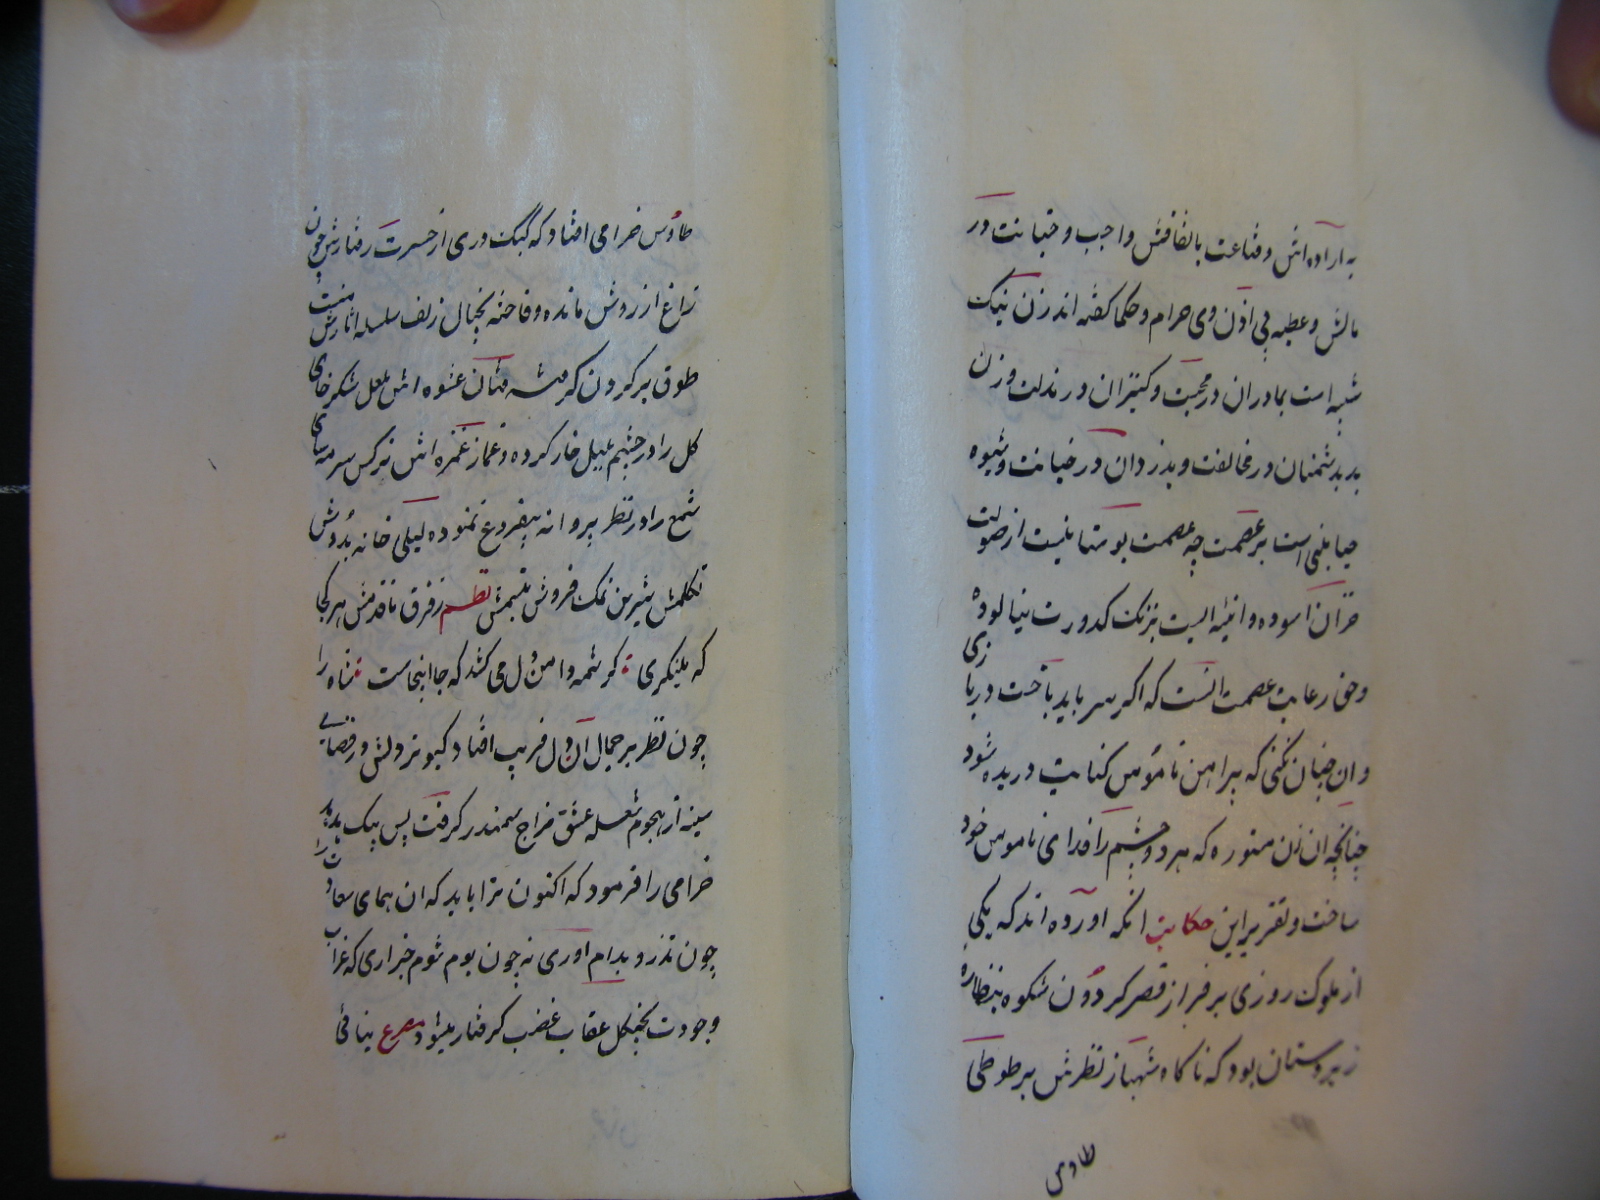 به اراده اش و قناعت بانفاقش واجب و خیانت در
مالش و عطیه بی اذن وی حرام و حکما گفته اند زن نیک
شبیه است بمادران در محبت و کنیزان در مذلت و زن
بد بدشمنان در مخالفت و بدزدان در خیانت و شیوه
حیا مبنی است بر عصمت چه عصمت بوستانیست از صولت
خزان اسوده و ائینه ایست بزنک کدورت نیالوده
و حق رعایت عصمت انست که اکر سر باید باخت دربازی
و ان چنان نکنی که پیراهن ناموس کنایت دریده شود
چنانچه ان زن مستوره که هر دو چشم را فدای ناموس خود
ساخت و تقریر این حکایت انکه اورده اند که یکی
از ملوک روزی بر فراز قصر کردون شکوه بنظاره
زیردستان بود که ناکاه شهباز نظرش بر طوطی
طاوس
طاوس خرامی افتاد که کبک دری از حسرت رفتارش چون
زاغ از روش مانده و فاخته بخیال زلف سلسله اثارش منت
طوق بر کردن کرشمه فتان عشوه اش بلعل شکرخای
کل را در چشم بلبل خار کرده و غماز غمزه اش نرکس سرمه سای
شمع را در نظر پروانه بیفروغ نموده لیلی خانه بدوش
تکلمش شیرین نمک فروش تبسمش نظم ز فرق تا قدمش هر کجا
که مینکری کرشمه دامن دل می کشد که جا اینجاست شاه را
چون نظر بر جمال آن دل فریب افتاد کبوتر دلش در فضای
سینه از هجوم شعله عشق مزاج سمندر کرفت پس پیک هدهد
خرامی را فرمود که اکنون ترا باید که ان همای سعادت را
چون تذرو بدام اوری نه چون بوم شوم خبر اری که غراب
وجودت بچنکل عقاب غضب کرفتار میشود مصرع بنائی